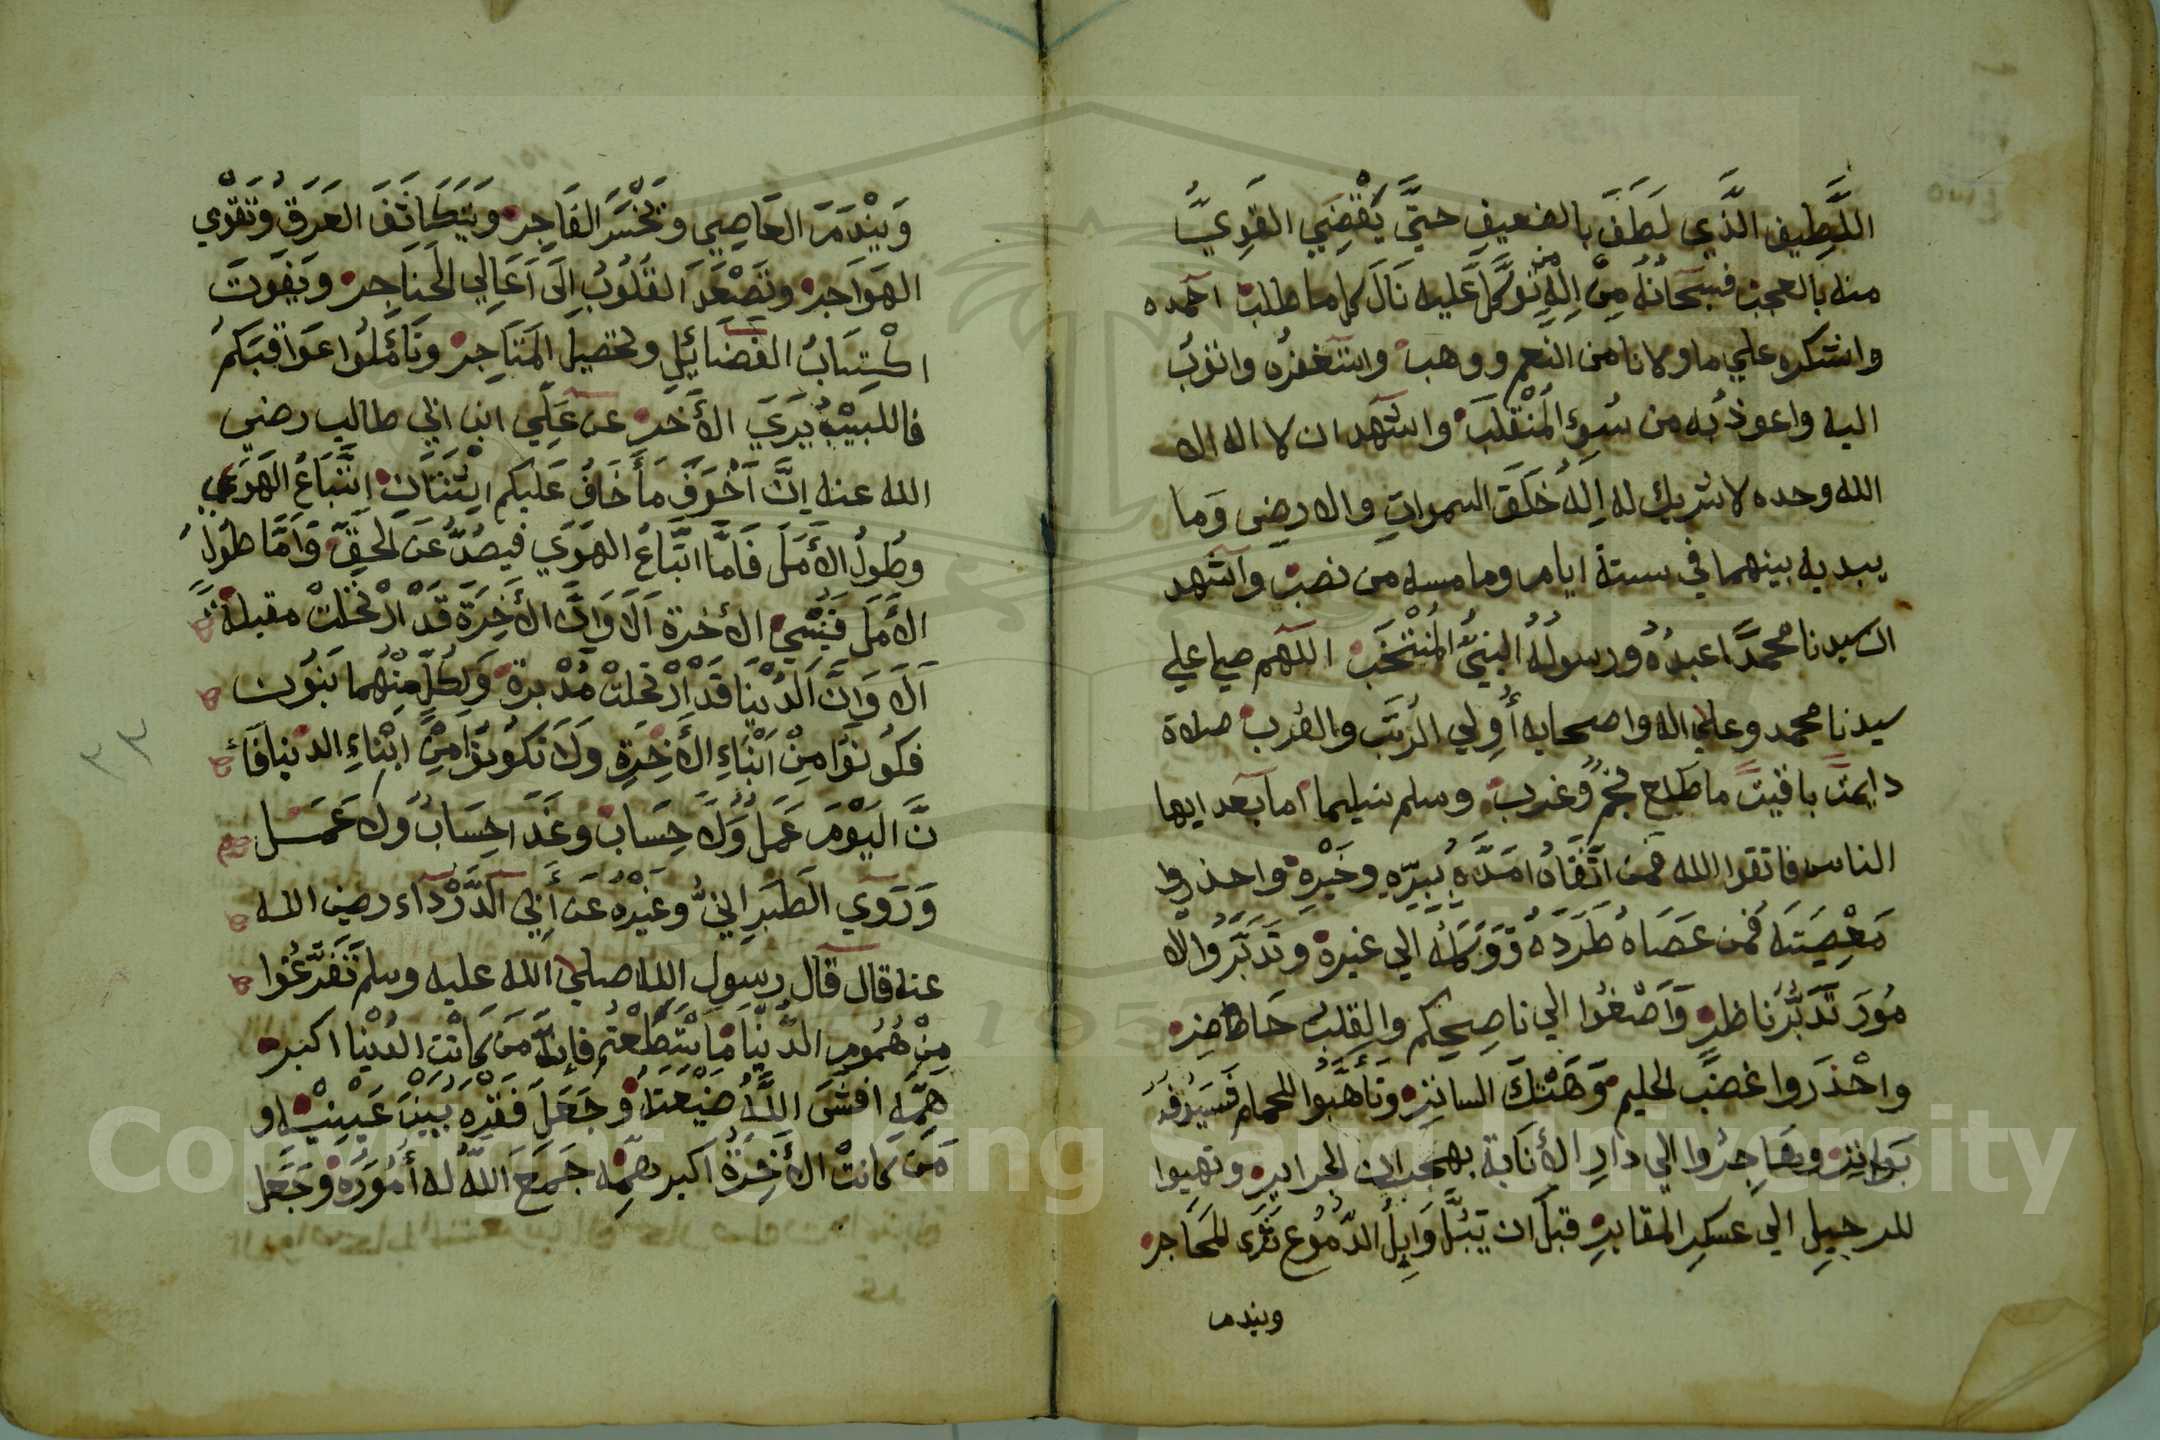 اللَّطِيفِ الَّذَي لَطَفَ بالضعيفِ حتيَّ يَقْضِي القَوِيُّ
منه بالعجب فسبحَانهُ مِنْ اِلهٍ مَنْ تَوكَّلَ عَليه نَالَ كلما طلب احمده
واشكره علي ما اولانا من النعم ووهب واستغفرُه واتوبُ
اليه واعوذُ به من سُوءِ المُنْقلَب واشهد ان لا اله الا
الله وحده لا شريك له اِلهٌ خَلَقَ السمواتِ والارضِ وَما
بينهما في ستة ايام وما مسه من نصب واشهد
ان سيدنا محمدًا عبدُهُ ورسولُهُ النبيُّ المُنْتَخَب اللهم صلي علي
سيدنا محمد وعلي اله واصحابه أُولِي الرُّتَب والقُرب صلاة
دايمت باقيت ما طَلعَ نجمٌ وغرب وسلم تسليما اما بعد ايها
الناس فاتقوا الله فمن اتَّقَاهُ امَدَّهُ بِبِرِّهِ وخَيْرِه واحذروا
مَعْصِيَتَه فمن عَصَاهُ طَرَدَهُ وَوَكَلَهُ الي غيره وتَدَبَّرُوا الا
مُورَ تَدَبُّرَ ناظر وَاَصْغُوا الي ناصِحِكم والقلبُ حَاضِر
واحْذَروا غضبَ الحليم وَهَتْكَ الساتر وتَأَهَّبُوا للحمام فَسُيُوفُهُ
بَوَاتِر وهَاجِرُوا الي دارِ الأنَابة بهجران الجراير وتهيوا
للرحيلِ الي عسكرِ المقابر قبل ان تَبُلَّ وَابِلُ الدُّمُوع ثَرَى المَحَاجر
ويندم
وَيَنْدَمَ العَاصِي وَيَخْسَرَ الفَاجِر وَيَتَكَاثَفَ العَرَق وَتَقْوَي
الهَوَاجر وتَصْعَدَ القلُوبُ اِلَي اَعَالِي الحَنَاجِر ويَفُوتَ
اكْتِسَابُ الفضَائِلِ وتحصيل المَتَاجِر وتَأمَّلُوا عَوَاقبَكُم
فاللبيْبُ يَرَيَ الأخر عن عَلِّي ابن ابي طالب رضي
الله عنه اِنَّ اَخْوَفَ مَا أَخَافُ عَلَيكم اثْنَتَانِ اتَّبَاعُ الهَوَي
وطُولُ الأمَلَ فَامَّا اتَّبَاعُ الهَوَي فيصُدُّ عَن الحق وَامَّا طُولُ
الأمَلَ فَيُنْسِي الأخرة اَلَا وَاِنَّ الأَخِرَةَ قَدْ ارْتَحَلتْ مقبلة
اَلَا وَاِنَّ الدُنْيَا قَدْ ارْتحَلتْ مُدْبرة وَلِكُلٍّ مِنْهُما بَنُون
فكُونُوا مِنْ اَبْنَاءِ الأَخِرَةِ وَلَا تكُونُوا مِنْ ابْناءِ الدنيا فَأِ
نَّ اليَوْمَ عَمَلٌ وَلَا حِسَاب وغَدًا حِسَابٌ ولا عَمَل
وَرَوَي الطَبَرانيُّ وغَيْرُه عَن أَبِي الدَّرْدَاء رضي الله
عنه قال قال رسول الله صلي الله عليه وسلم تَفَرَّغُوا
مِنْ هُمُومِ الدُّنْيَا مَا اسْتَطَعْتُم فإنه مَن كَانَتِ الدُنْيَا اكبر
هِمَّهِ افشَى اللَّهُ ضَيْعَتَهُ وجَعَلَ فَقْرَه بَيْنَ عَيْنَيْه و
مَن كانتْ الأَخِرَةُ اكبر هَمِّه جَمَعَ اللَّهُ له أُمُورَه وجَعَلَ
٣٣